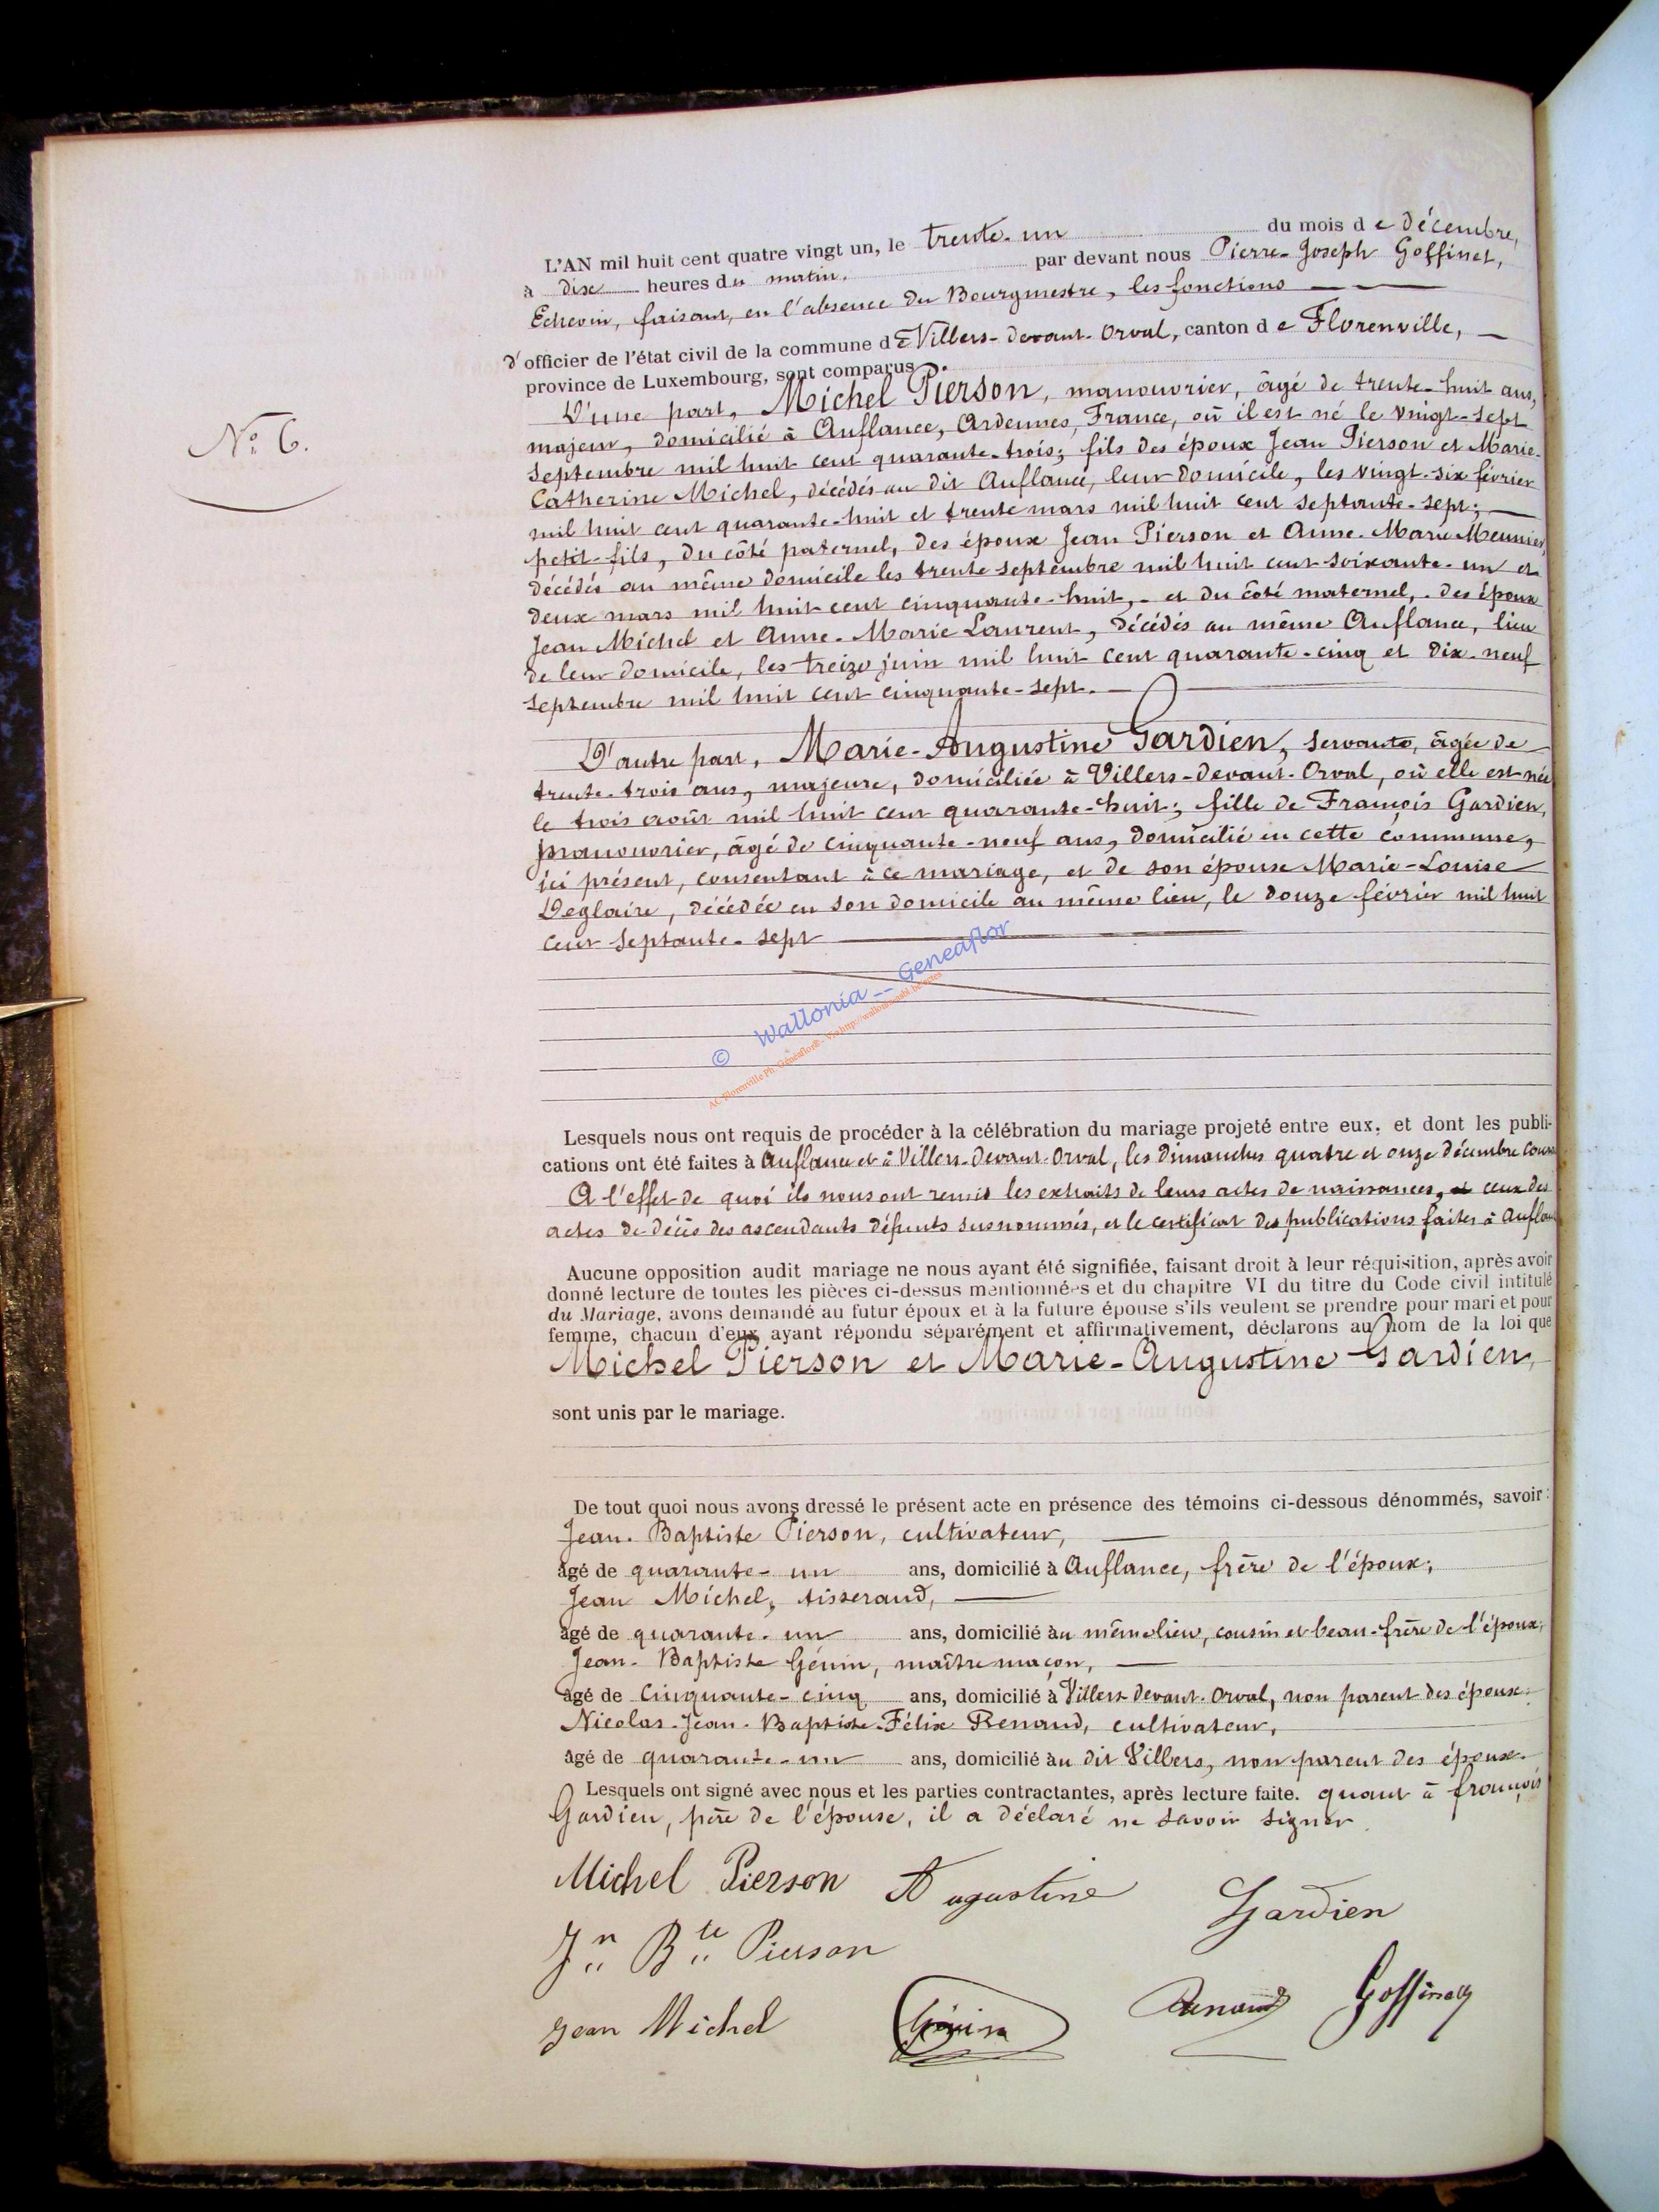 L'AN mil huit cent quatre vingt un, le trente-un du mois de décembre,
à dix heures du matin, par devant nous Pierre-Joseph Goffinet,
Echevin, faisant, en l'absence du Bourgmestre, les fonctions
d'officier de l'état civil de la commune de Villers-devant-Orval, canton de Florenville,
province de Luxembourg, sont comparus.
D'une part, Michel Pierson, manouvrier, âgé de trente-huit ans,
majeur, domicilié à Auflance, Ardennes, France, où il est né le vingt-sept
septembre mil huit cent quarante-trois; fils des époux Jean Pierson et Marie-
Catherine Michel, décédés au dit Auflance, leur domicile, les vingt-six février
mil huit cent quarante-huit et trente mars mil huit cent septante-sept;
petit-fils, du côté paternel, des époux Jean Pierson et Anne-Marie Meunier,
décédés au même domicile les trente septembre mil huit cent soixante-un et
deux mars mil huit cent cinquante-huit, et du côté maternel, des époux
Jean Michel et Anne-Marie Laurent, décédés au même Auflance, lieu
de leur domicile, les treize juin mil huit cent quarante-cinq et dix-neuf
septembre mil huit cent cinquante-sept.
N° 6.
D'autre part, Marie-Augustine Gardien, servante, âgée de
trente-trois ans, majeure, domiciliée à Villers-devant-Orval, où elle est née
le trois août mil huit cent quarante-huit; fille de François Gardien,
manouvrier, âgé de cinquante-neuf ans, domicilié en cette commune,
ici présent, consentant à ce mariage, et de son épouse Marie-Louise
Deglaire, décédée en son domicile au même lieu, le douze février mil huit
cent septante-sept
© Wallonia -- Geneaflor
Lesquels nous ont requis de procéder à la célébration du mariage projeté entre eux, et dont les publi-
cations ont été faites à Auflance et à Villers-devant-Orval, les dimanches quatre et onze décembre
A l'effet de quoi ils nous ont remis les extraits de leurs actes de naissances, ceux des
actes de décès des ascendants défunts susnommés, et le certificat des publications faites à
Aucune opposition audit mariage ne nous ayant été signifiée, faisant droit à leur réquisition, après avoir
donné lecture de toutes les pièces ci-dessus mentionnées et du chapitre VI du titre du Code civil intitulé
du Mariage, avons demandé au futur époux et à la future épouse s'ils veulent se prendre pour mari et pour
femme, chacun d'eux ayant répondu séparément et affirmativement, déclarons au nom de la loi que
Michel Pierson et Marie-Augustine Gardien,
sont unis par le mariage.
De tout quoi nous avons dressé le présent acte en présence des témoins ci-dessous dénommés, savoir:
Jean-Baptiste Pierson, cultivateur,
âgé de quarante-un ans, domicilié à Auflance, frère de l'époux;
Jean Michel, tisserand,
âgé de quarante-un ans, domicilié au même lieu, cousin et beau-frère de l'époux;
Jean-Baptiste Génin, maître maçon,
âgé de cinquante-cinq ans, domicilié à Villers-devant-Orval, non parent des époux;
Nicolas-Jean-Baptiste-Félix Renaud, cultivateur,
âgé de quarante-un ans, domicilié au dit Villers, non parent des époux.
Lesquels ont signé avec nous et les parties contractantes, après lecture faite. quant à françois
Gardien, père de l'épouse, il a déclaré ne savoir signer.
Michel Pierson Augustine Gardien
Jn Bte Pierson
Jean Michel Génin Renaud Goffinet